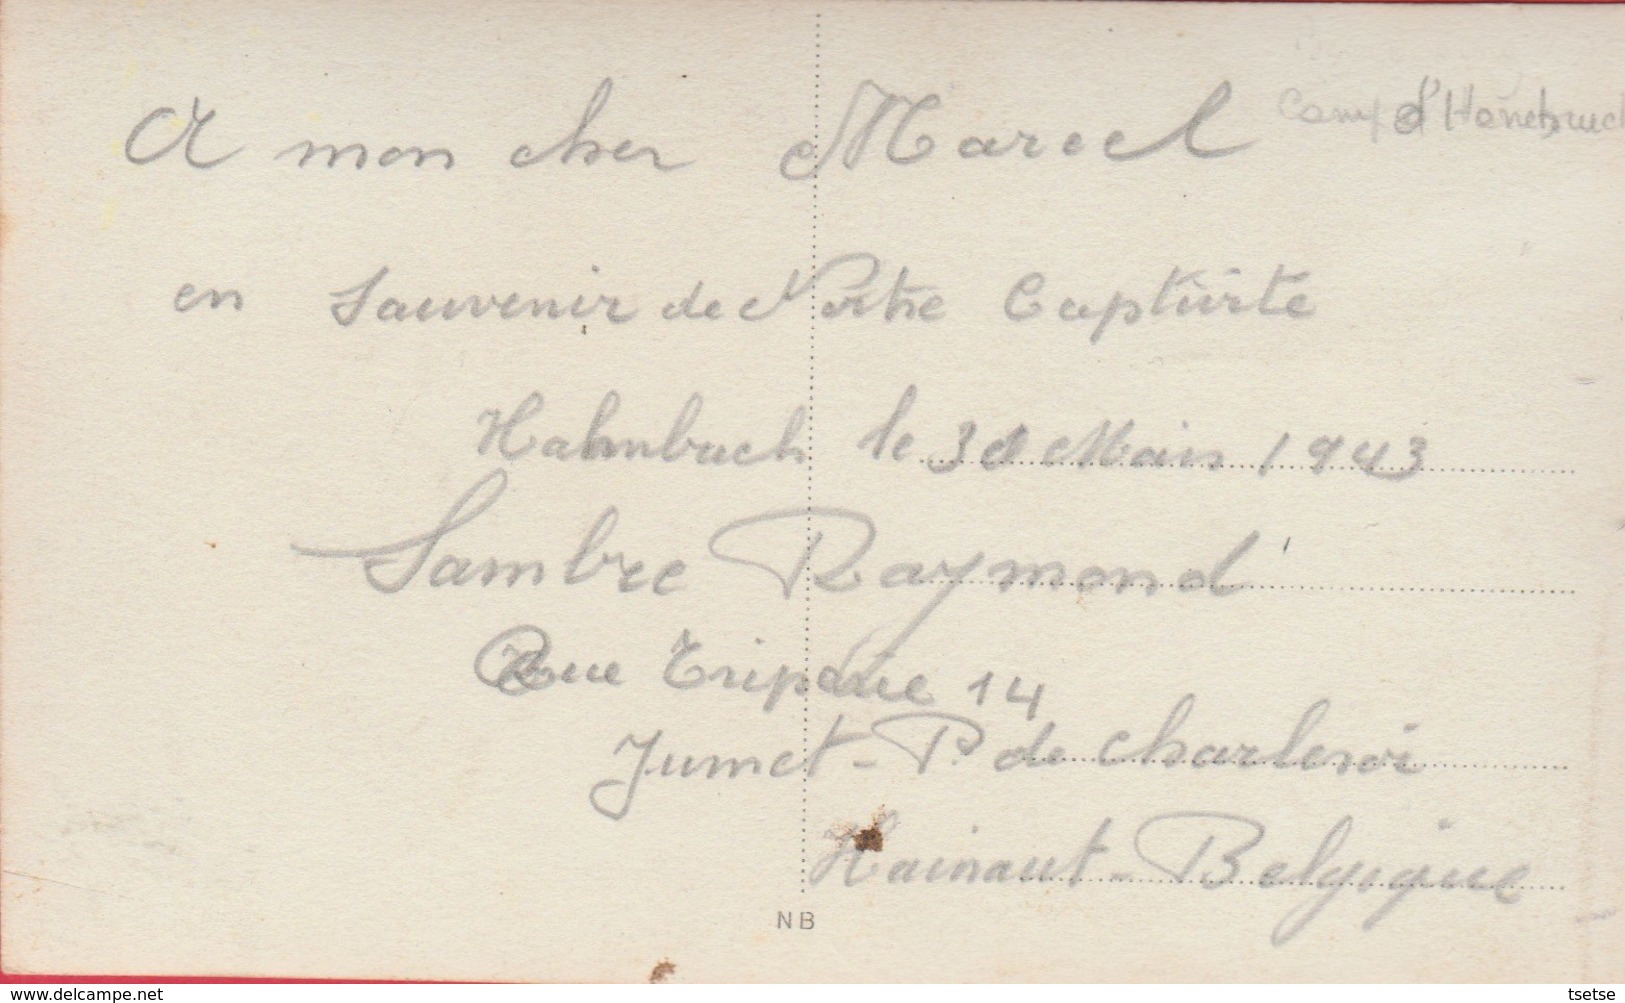 A mon cher Marcel
Camp d'Hanebruch
en Souvenir de Notre Captivite
Hahnbach le 30 Mars 1943
Sambre Raymond
Rue Triparie 14
Jumet - P. de Charleroi
Hainaut - Belgique
NB
www.delcampe.net
tsetse